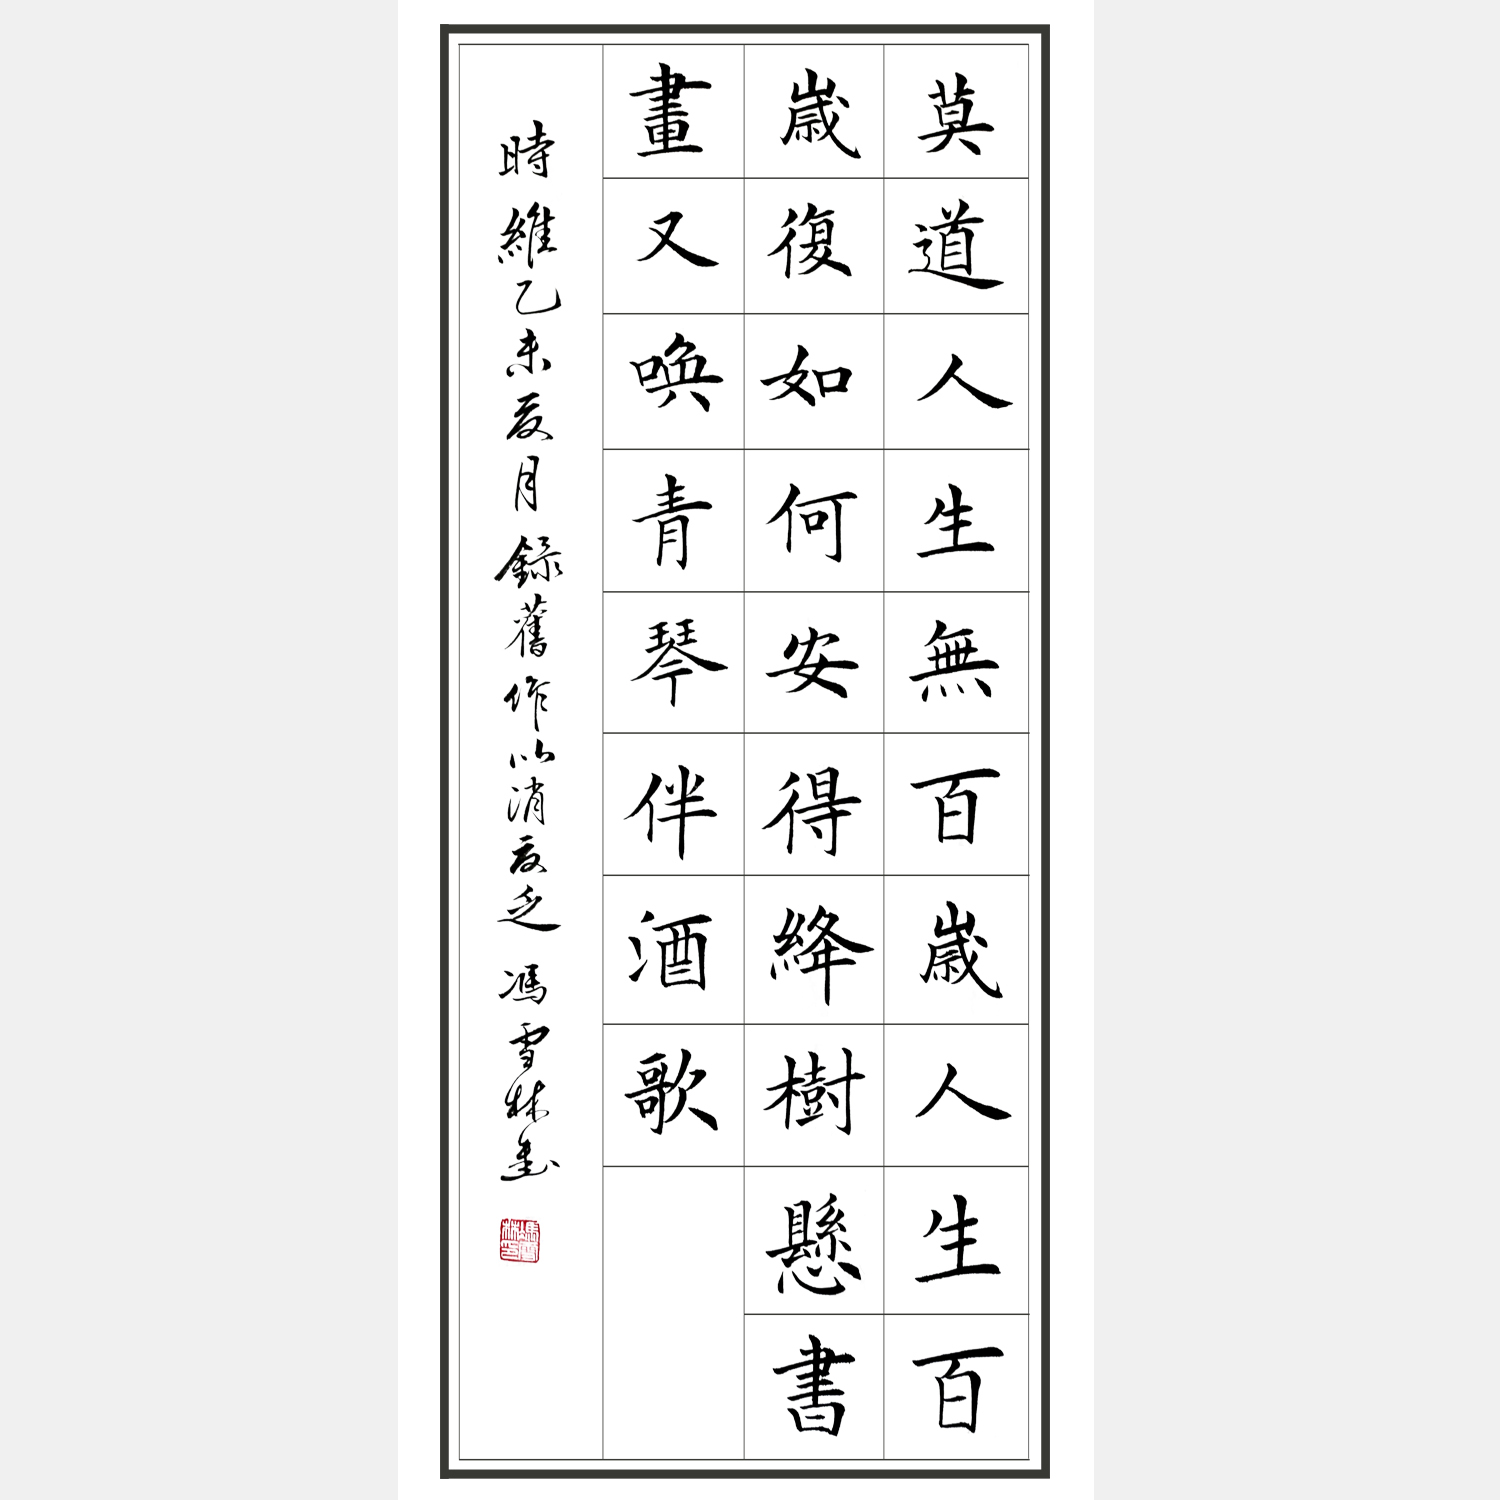 莫道人生無百歲人生百
歲復如何安得絳樹懸書
畫又喚青琴伴酒歌
時維乙未夏月錄舊作以消夏乏 馮雪林書
馮雪林印